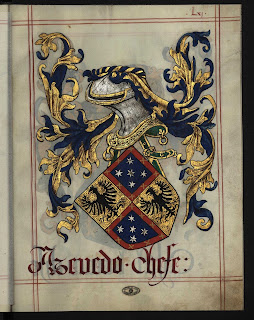 Azevedo · chefe: